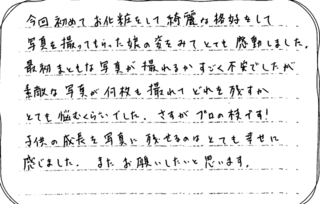 今回初めてお化粧をして綺麗な格好をして
写真を撮ってもらった娘の姿をみてとても感動しました。
最初まともな写真が撮れるかすごく不安でしたが
素敵な写真が何枚も撮れてどれを残すか
とても悩むくらいでした。さすがプロの技です!
子供の成長を写真に残せるのはとても幸せに
感じました。またお願いしたいと思います。